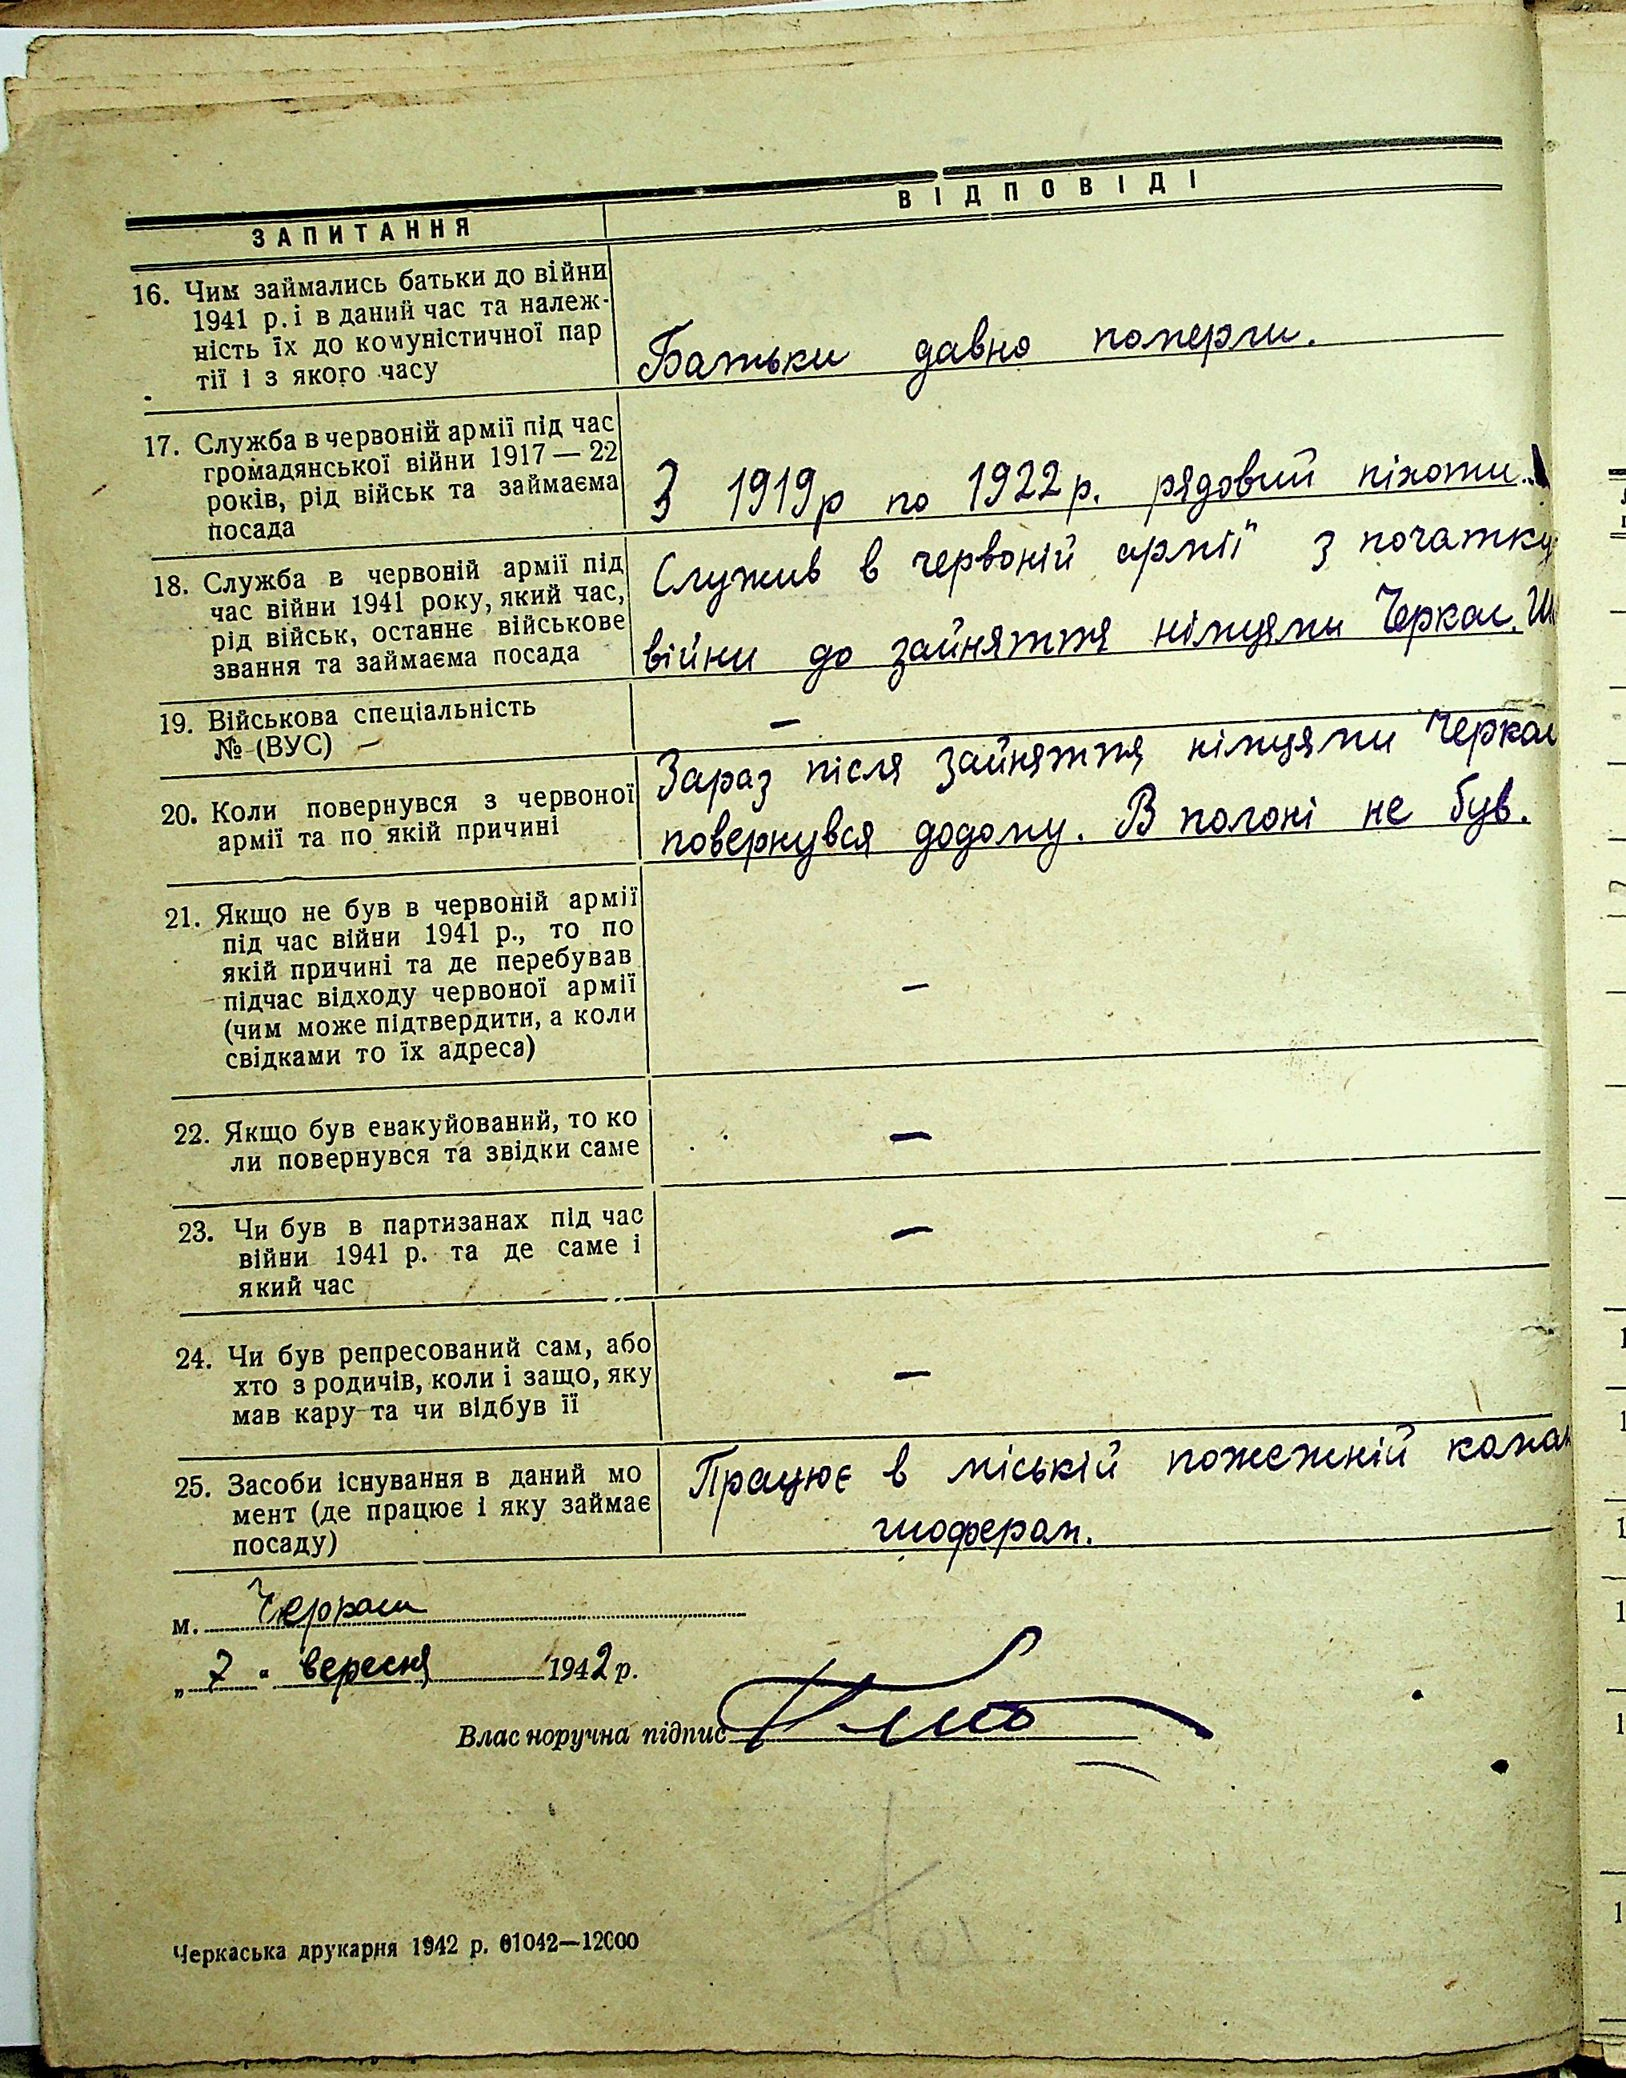 ЗАПИТАННЯ
ВІДПОВІДІ
16. Чим займались батьки до війни
1941 р. і в даний час та належ-
ність їх до комуністичної пар
тії і з якого часу
Батьки давно померли.
17. Служба в червоній армії під час
громадянської війни 1917 — 22
років, рід військ та займаєма
посада
З 1919р по 1922р. рядовий піхоти.
18. Служба в червоній армії під
час війни 1941 року, який час,
рід військ, останнє військове
звання та займаєма посада
Служив в червоній армії з початку
війни до зайняття німцями Черкас.
19. Військова спеціальність
№ (ВУС) —
—
20. Коли повернувся з червоної
армії та по якій причині
Зараз після зайняття німцями Черкас
повернувся додому. В полоні не був.
21. Якщо не був в червоній армії
під час війни 1941 р., то по
якій причині та де перебував
підчас відходу червоної армії
(чим може підтвердити, а коли
свідками то їх адреса)
—
22. Якщо був евакуйований, то ко
ли повернувся та звідки саме
—
23. Чи був в партизанах під час
війни 1941 р. та де саме і
який час
—
24. Чи був репресований сам, або
хто з родичів, коли і защо, яку
мав кару та чи відбув її
—
25. Засоби існування в даний мо
мент (де працює і яку займає
посаду)
Працює в міській пожежній кома
шофером.
м. Черкаси
„ 7 " вересня 1942 р.
Власноручна підпис
Черкаська друкарня 1942 р. 01042—12000